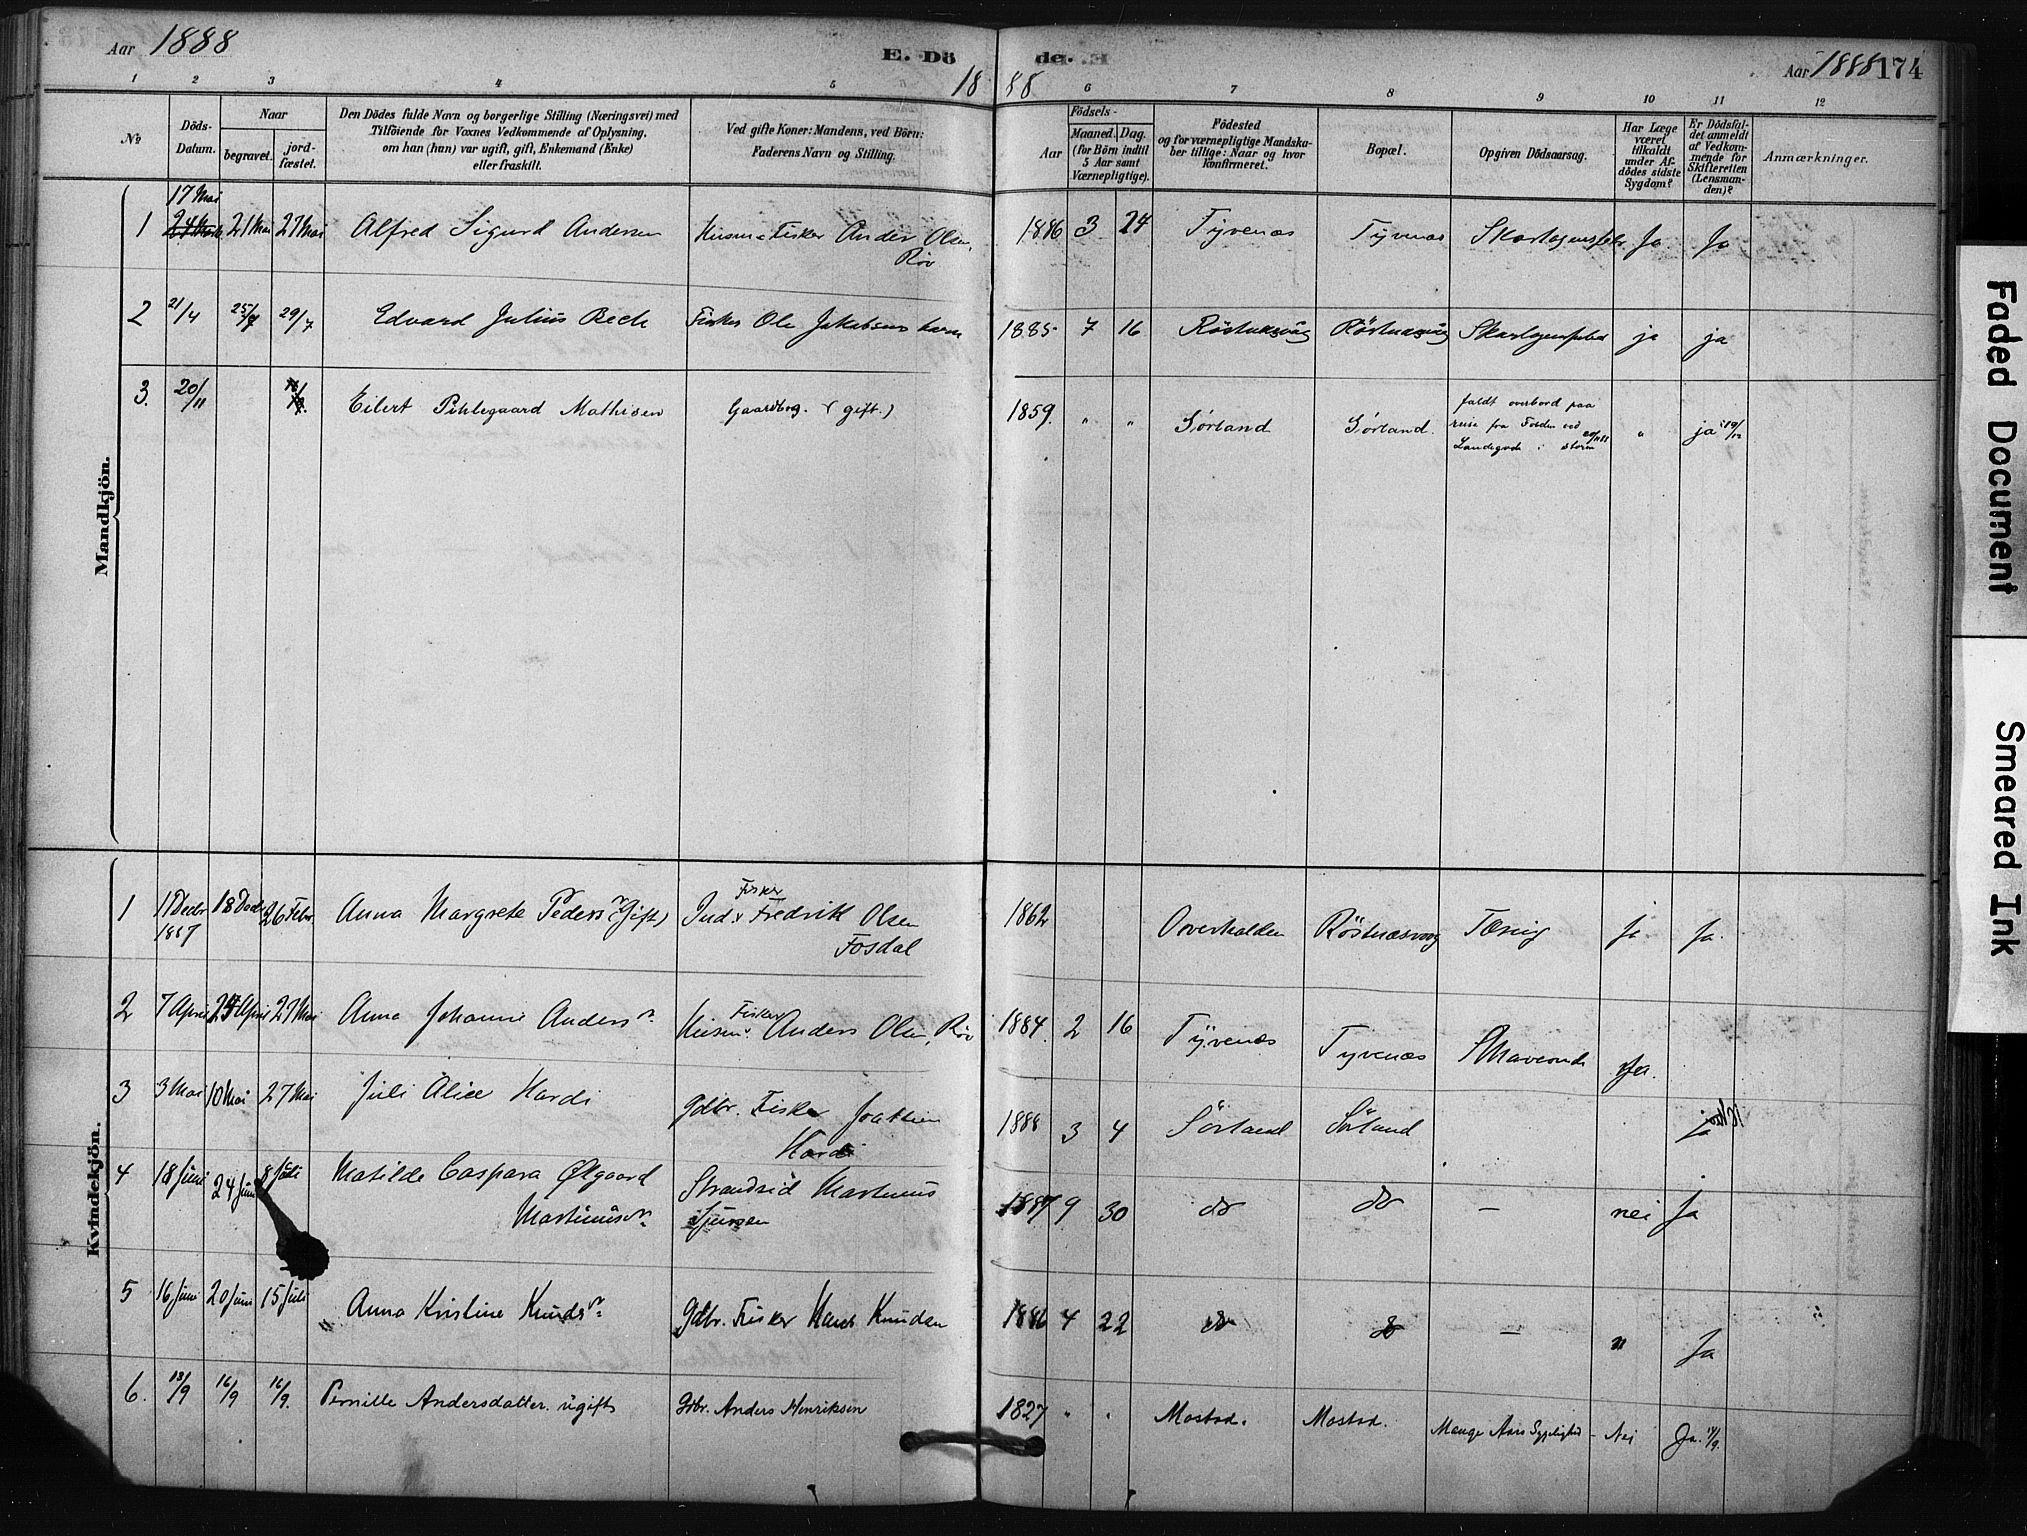 Aar 1888
E. Dö
de.
18
88
Aar 1888
174
1 2 3 4 5 6 7 8 9 10 11 12
No
Döds-
Datum.
Naar
begravet.
jord-
fæstet.
Den Dödes fulde Navn og borgerlige Stilling (Næringsvei) med
Tilföiende for Voxnes Vedkommende af Oplysning,
om han (hun) var ugift, gift, Enkemand (Enke)
eller fraskilt.
Ved gifte Koner: Mandens, ved Börn:
Faderens Navn og Stilling.
Födsels-
Aar
Maaned. Dag.
(for Börn indtil
5 Aar samt
Værnepligtige).
Födested
og for værnepligtige Mandska-
ber tillige: Naar og hvor
konfirmeret.
Bopæl.
Opgiven Dödsaarsag.
Har Læge
været
tilkaldt
under Af-
dödes sidste
Sygdom?
Er Dödsfal-
det anmeldt
af Vedkom-
mende for
Skifteretten
(Lensman-
den)?
Anmærkninger.
Mandkjön.
17 Mai
1 21 Mai 27 Mai Alfred Sigurd Andersen Husm. Fisker Anders Olsen, 1886 3 24 Tyvenæs Tyvenæs Skarlagensfeber Ja Ja
Röv
2 21/4 25/4 29/7 Edvard Julius Beck Fisker Ole Jakobsens barn 1885 7 16 Röstnæsvåg Röstnæsvåg Skarlagensfeber ja ja
3. 20/11 Eilert Pihlegaard Mathisen Gaardbrg. (gift.) 1859. " " Sørland Sørland. faldt overbord paa
reise fra Bodön ved
Landegode i storm 20/11 88 " ja 19/12
Kvindekjön.
1 11 Decbr 18 Decbr 26 Febr. Anna Margrete Pedersn (Gift) Fisker
Ind. Fredrik Olsen 1862 Overhalden Röstnæsvaag Tæring ja Ja.
1887
Fosdal
2 7 April 24 April 27 Mai Anna Johanne Andersn. Fisker
Husm. Anders Olsen, Röv 1884. 2 16 Tyvenæs Tyvenæs Ja.
3 3 Mai 10 Mai 27 Mai Juli Alice Hardi Gdbr. Fisker Joakim 1888 3 4 Sörland Sörland ja
Hardi
4 18 Juni 24 Juni 8 Juli Matilde Caspara Ølgaard Strandsid Martinus 1887 9 30 do do — nei Ja
Martinusn. Sjursen
5 16 Juni 20 Juni 15 Juli Anna Kristine Knudsn. Gdbr. Fisker Hans Knudsen 1886 4 22 do do — " Ja
6. 13/9 16/9 16/9. Pernille Andersdatter. ugift Gbr. Anders Henriksen 1827 " " Mostad. Mostad. Mange Aars Sygelighed - Nei Ja. 17/9.
Faded Document
Smeared Ink